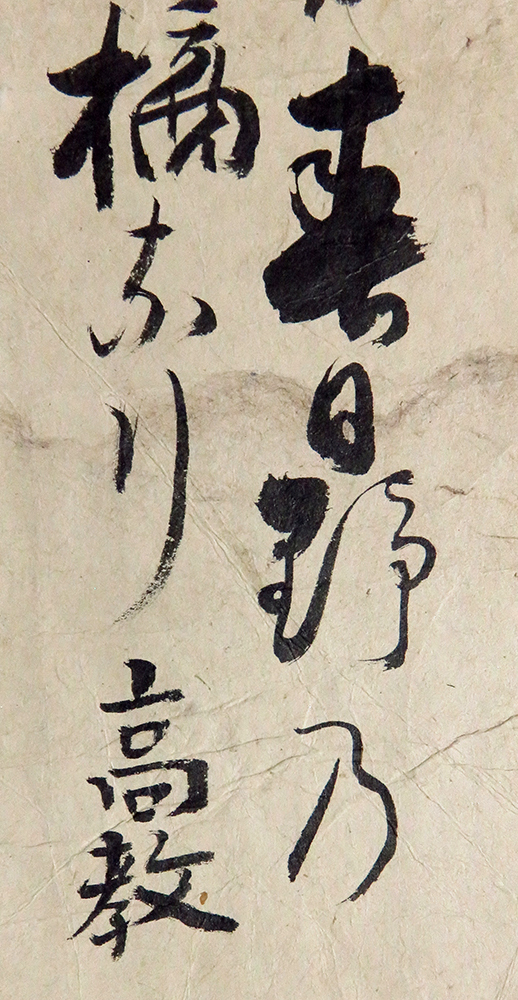 春日野乃
橘なり 高教